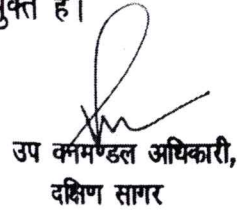 युक्त है।
उप वनमण्डल अधिकारी,
दक्षिण सागर